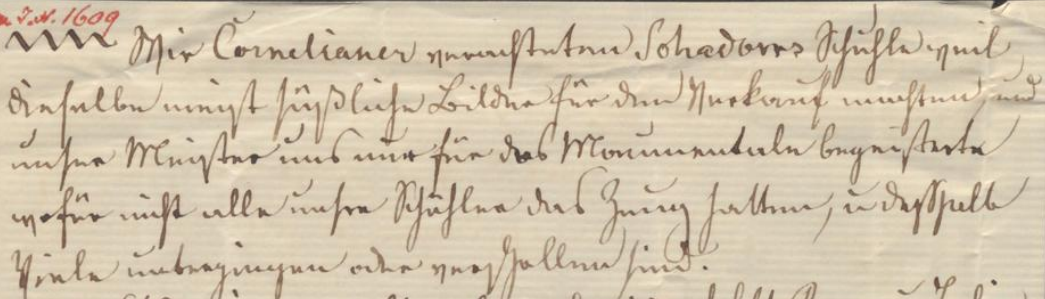 J.N. 1609
Wir Cornelianer verachteten Schadows Schuhle weil
dieselbe meist süßliche Bilder für den Verkauf machten, und
unser Meister uns nur für das Monumentale begeisterte
wofür nicht alle unsre Schühler das Zeug hatten, u deßhalb
Viele untergingen oder verschollen sind.